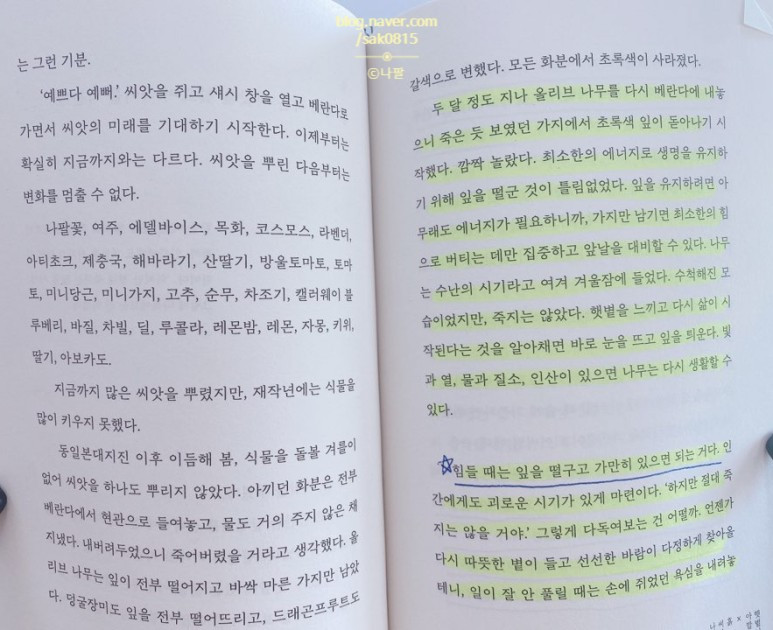 blog.naver.com
/sak0815
©나팔
는 그런 기분.
'예쁘다 예뻐.' 씨앗을 쥐고 섀시 창을 열고 베란다로
가면서 씨앗의 미래를 기대하기 시작한다. 이제부터는
확실히 지금까지와는 다르다. 씨앗을 뿌린 다음부터는
변화를 멈출 수 없다.
나팔꽃, 여주, 에델바이스, 목화, 코스모스, 라벤더,
아티초크, 제충국, 해바라기, 산딸기, 방울토마토, 토마
토, 미니당근, 미니가지, 고추, 순무, 차조기, 캘러웨이 블
루베리, 바질, 차빌, 딜, 루콜라, 레몬밤, 레몬, 자몽, 키위,
딸기, 아보카도.
지금까지 많은 씨앗을 뿌렸지만, 재작년에는 식물을
많이 키우지 못했다.
동일본대지진 이후 이듬해 봄, 식물을 돌볼 겨를이
없어 씨앗을 하나도 뿌리지 않았다. 아끼던 화분은 전부
베란다에서 현관으로 들여놓고, 물도 거의 주지 않은 채
지냈다. 내버려두었으니 죽어버렸을 거라고 생각했다. 올
리브 나무는 잎이 전부 떨어지고 바싹 마른 가지만 남았
다. 덩굴장미도 잎을 전부 떨어뜨리고, 드래곤프루트도
갈색으로 변했다. 모든 화분에서 초록색이 사라졌다.
두 달 정도 지나 올리브 나무를 다시 베란다에 내놓
으니 죽은 듯 보였던 가지에서 초록색 잎이 돋아나기 시
작했다. 깜짝 놀랐다. 최소한의 에너지로 생명을 유지하
기 위해 잎을 떨군 것이 틀림없었다. 잎을 유지하려면 아
무래도 에너지가 필요하니까, 가지만 남기면 최소한의 힘
으로 버티는 데만 집중하고 앞날을 대비할 수 있다. 나무
는 수난의 시기라고 여겨 겨울잠에 들었다. 수척해진 모
습이었지만, 죽지는 않았다. 햇볕을 느끼고 다시 삶이 시
작된다는 것을 알아채면 바로 눈을 뜨고 잎을 틔운다. 빛
과 열, 물과 질소, 인산이 있으면 나무는 다시 생활할 수
있다.
힘들 때는 잎을 떨구고 가만히 있으면 되는 거다. 인
간에게도 괴로운 시기가 있게 마련이다. '하지만 절대 죽
지는 않을 거야.' 그렇게 다독여보는 건 어떨까. 언젠가
다시 따뜻한 볕이 들고 선선한 바람이 다정하게 찾아올
테니, 일이 잘 안 풀릴 때는 손에 쥐었던 욕심을 내려놓